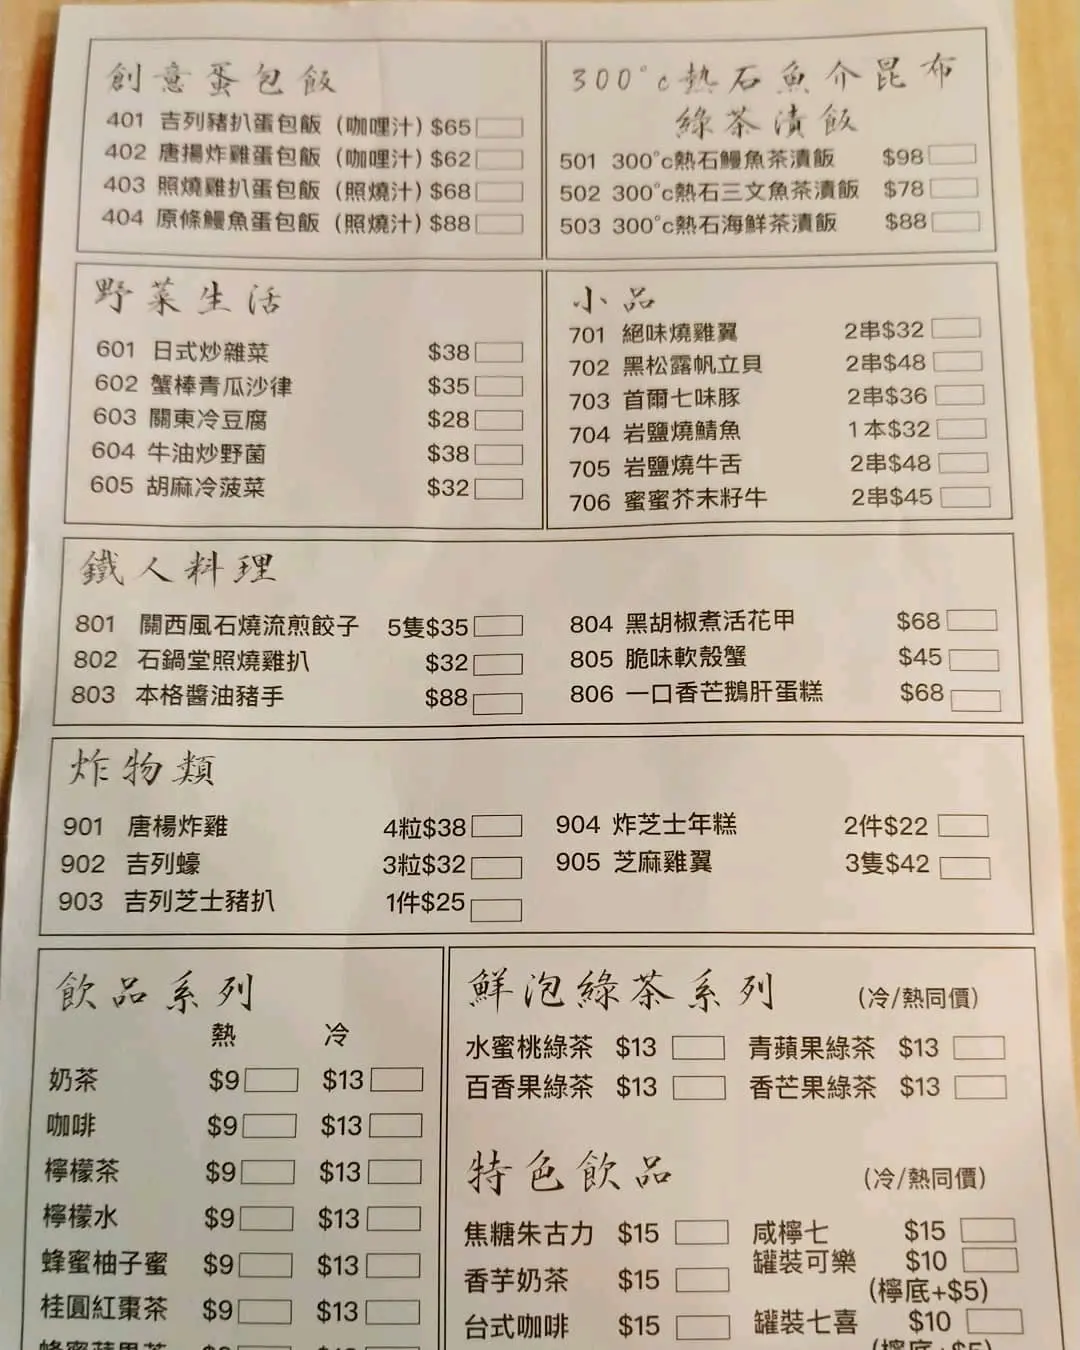 創意蛋包飯
401 吉列豬扒蛋包飯（咖哩汁）$65
402 唐揚炸雞蛋包飯（咖哩汁）$62
403 照燒雞扒蛋包飯（照燒汁）$68
404 原條鰻魚蛋包飯（照燒汁）$88
300°c熱石魚介昆布
綠茶漬飯
501 300°c熱石鰻魚茶漬飯 $98
502 300°c熱石三文魚茶漬飯 $78
503 300°c熱石海鮮茶漬飯 $88
野菜生活
601 日式炒雜菜 $38
602 蟹棒青瓜沙律 $35
603 關東冷豆腐 $28
604 牛油炒野菌 $38
605 胡麻冷菠菜 $32
小品
701 絕味燒雞翼 2串$32
702 黑松露帆立貝 2串$48
703 首爾七味豚 2串$36
704 岩鹽燒鯖魚 1本$32
705 岩鹽燒牛舌 2串$48
706 蜜蜜芥末籽牛 2串$45
鐵人料理
801 關西風石燒流煎餃子 5隻$35
802 石鍋堂照燒雞扒 $32
803 本格醬油豬手 $88
804 黑胡椒煮活花甲 $68
805 脆味軟殼蟹 $45
806 一口香芒鵝肝蛋糕 $68
炸物類
901 唐楊炸雞 4粒$38
902 吉列蠔 3粒$32
903 吉列芝士豬扒 1件$25
904 炸芝士年糕 2件$22
905 芝麻雞翼 3隻$42
飲品系列
熱 冷
奶茶 $9 $13
咖啡 $9 $13
檸檬茶 $9 $13
檸檬水 $9 $13
蜂蜜柚子蜜 $9 $13
桂圓紅棗茶 $9 $13
鮮泡綠茶系列 (冷/熱同價)
水蜜桃綠茶 $13 青蘋果綠茶 $13
百香果綠茶 $13 香芒果綠茶 $13
特色飲品 (冷/熱同價)
焦糖朱古力 $15 咸檸七 $15
罐裝可樂 $10
香芋奶茶 $15 (檸底+$5)
台式咖啡 $15 罐裝七喜 $10